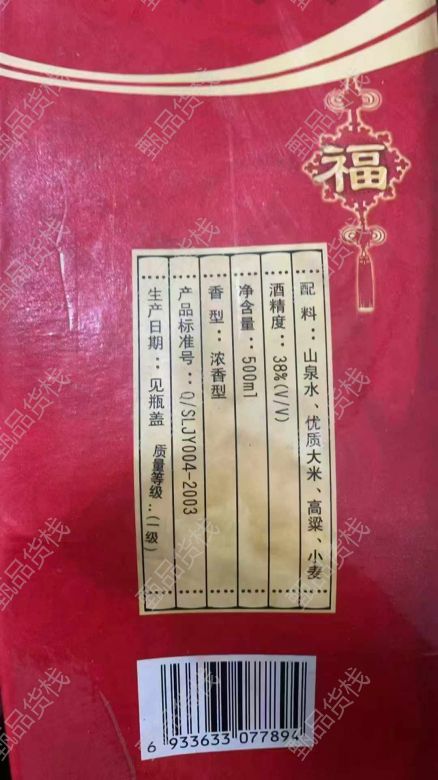 福
配料：山泉水、优质大米、高粱、小麦
酒精度：38%(V/V)
净含量：500ml
香型：浓香型
产品标准号：Q/SLJY004-2003
生产日期：见瓶盖 质量等级：(一级)
6 933633 077894
甄品货栈